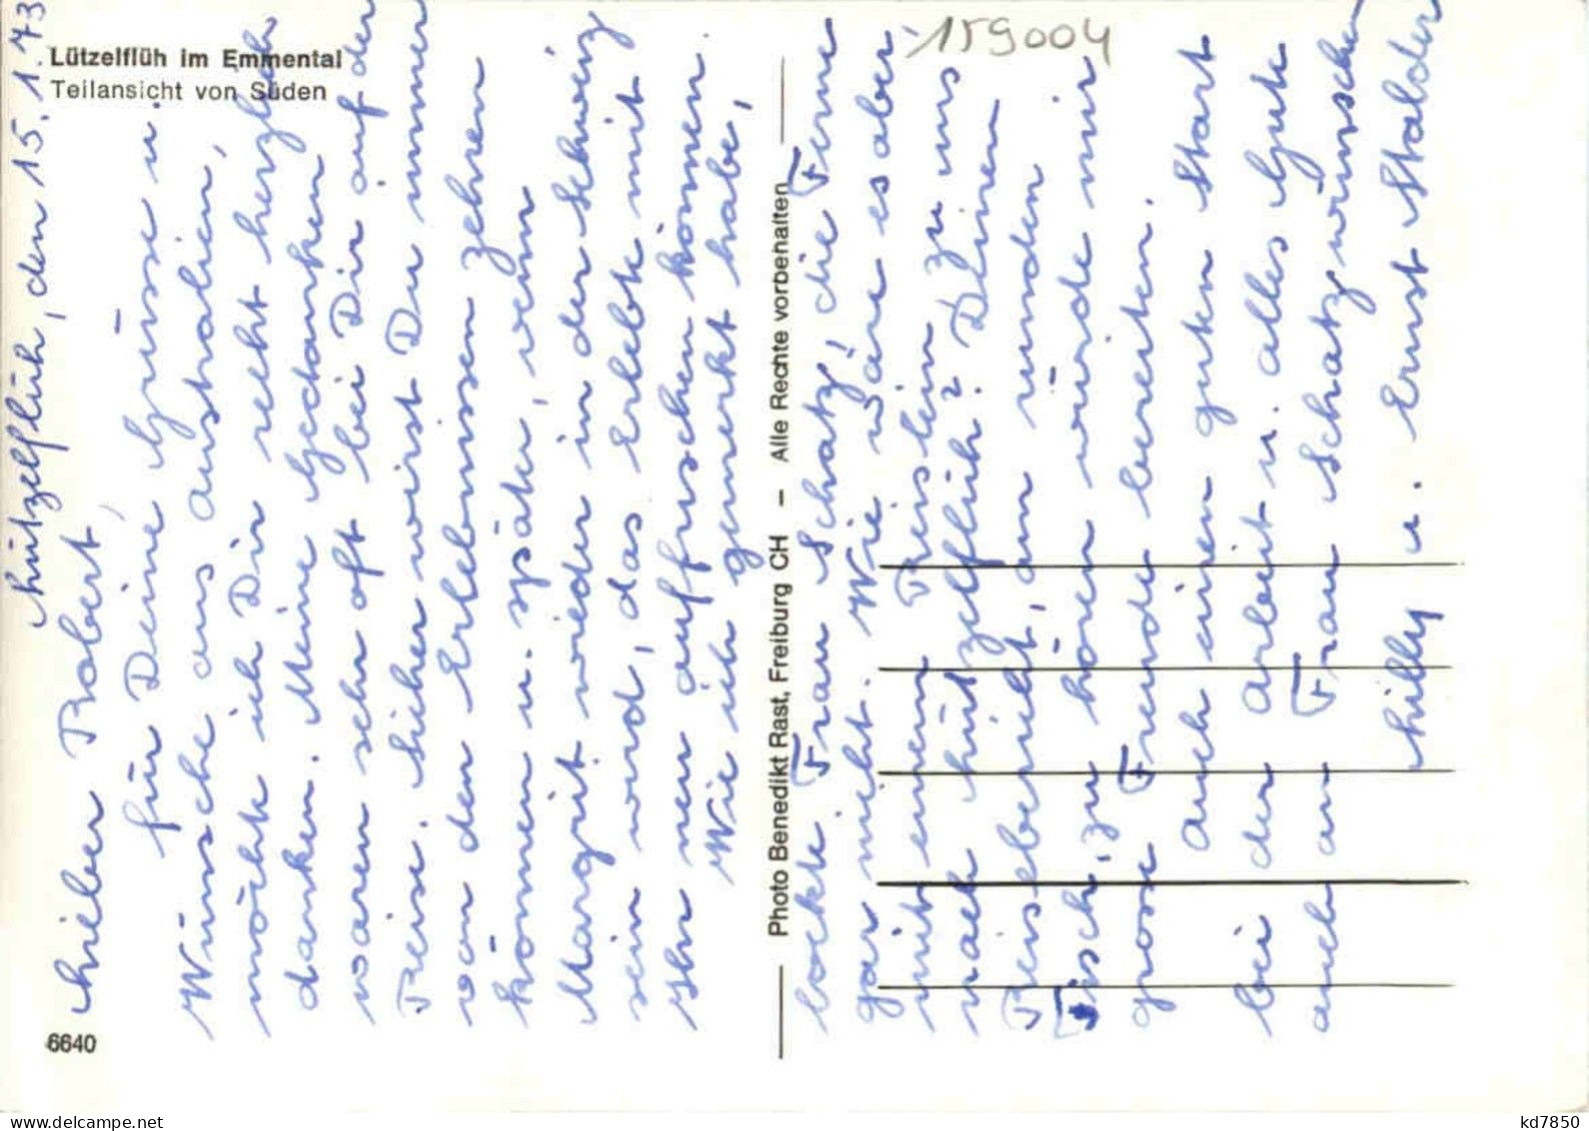 Lützelflüh im Emmental
Teilansicht von Süden
159004
Lützelflüh, den 15. 1. 73
Lieber Robert,
für Deine Grüsse u.
Wünsche aus Australien,
möchte ich Dir recht herzlich
danken. Meine Gedanken
waren sehr oft bei Dir auf der
Reise. Sicher wirst Du immer
von den Erlebnissen zehren
können u. später, wenn
Margrit wieder in der Schweiz
sein wird, das Erlebte mit
Ihr neu auffrischen können.
Wie ich gemerkt habe,
lockte Frau Schatz, die Ferne
gar nicht. Wie wäre es aber
mit einem Reislein zu uns
nach Lützelflüh? Deinen
Reisebericht, am runden
Tisch, zu hören würde mir
grosse Freude bereiten.
Auch einen guten Start
bei der Arbeit u. alles Gute
auch an Frau Schatz wünschen
Lilly u. Ernst Stalder
Photo Benedikt Rast, Freiburg CH – Alle Rechte vorbehalten
6640
www.delcampe.net
kd7850